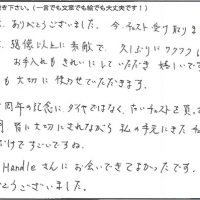 き下さい。(一言でも文章でも絵でも大丈夫です!)
ありがとうございました。今、チェスト受け取りま
想像以上に素敵で、久しぶりにワクワク
お手入れもきれいにしていただき嬉しいです
も大切に使わせていただきます。
周年の記念にダイヤではなく、古いチェストを買
皆に大切にされながら私の手元にきた
だけですごいですね。
Handleさんにお会いできてよかったです。
とうございました。